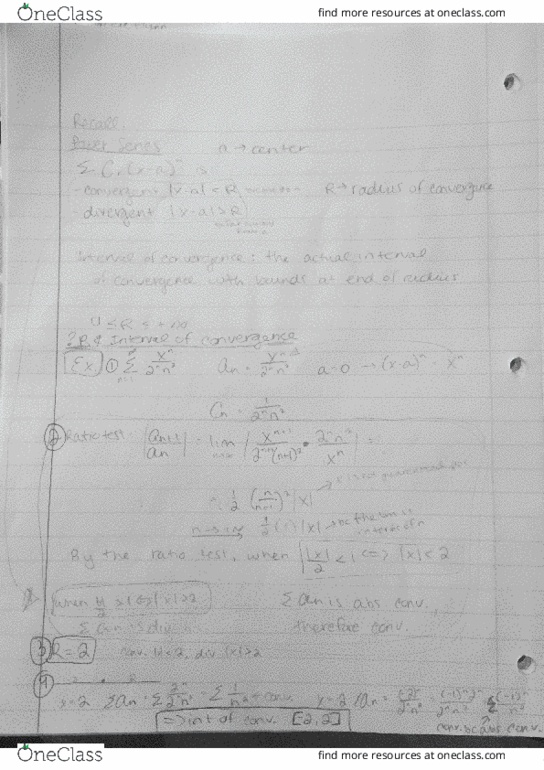 OneClass find more resources at oneclass.com
Recall
Power Series a → center
Σ Cn(x-a)^n is
- convergent |x-a| < R R → radius of convergence
- divergent |x-a| > R
Interval of convergence: the actual interval
of convergence with bounds at end of radius
0 ≤ R ≤ +∞
? R & Interval of convergence
Ex. ① Σ x^n/2^n n² an = x^n/2^n n² a=0 → (x-a)^n = x^n
Cn = 1/2^n n²
② Ratio test |an+1/an| = lim | x^n+1/2^n+1 (n+1)² • 2^n n²/x^n | =
1/2 (n/n+1)² |x|
n→∞ 1/2 (1) |x| → bc the lim is in terms of n
By the ratio test, when |x|/2 < 1 <=> |x| < 2
when |x|/2 > 1 <=> |x| > 2 Σ an is abs conv.,
Σ an is div therefore conv.
③ R = 2 conv. |x| < 2, div |x| > 2
④
x = 2 Σ an = Σ 2^n/2^n n² = Σ 1/n² → conv x = -2 Σ an = (-2)^n/2^n n² = (-1)^n 2^n/2^n n² = Σ (-1)^n/n²
=> int of conv. [2, 2] conv. bc abs conv.
OneClass find more resources at oneclass.com